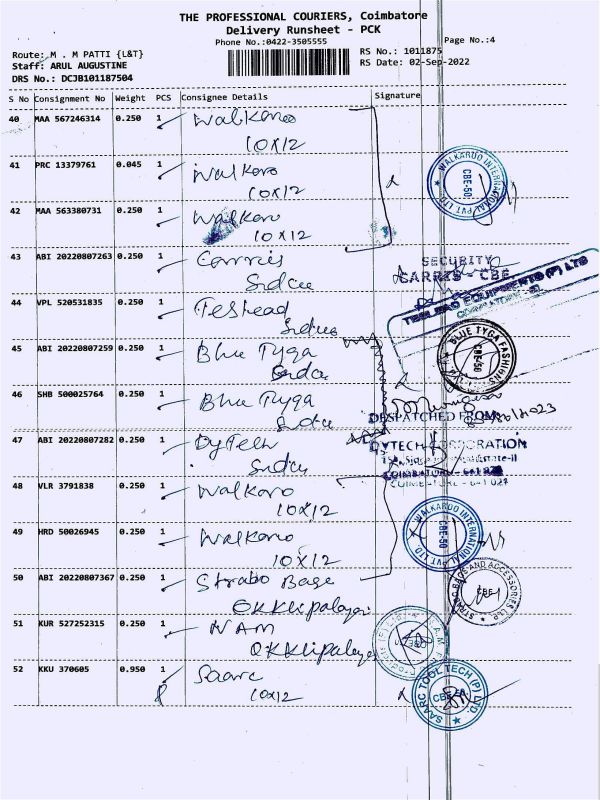 THE PROFESSIONAL COURIERS, Coimbatore
Delivery Runsheet - PCK
Phone No.:0422-3505555
Page No.:4
Route: M . M PATTI {L&T}
RS No.: 1011875
Staff: ARUL AUGUSTINE
RS Date: 02-Sep-2022
DRS No.: DCJB101187504
S No Consignment No Weight PCS Consignee Details Signature
40 MAA 567246314 0.250 1 Walkaroo
10X12
41 PRC 13379761 0.045 1 Walkaro
10X12
42 MAA 563380731 0.250 1 Walkaro
10X12
43 ABI 20220807263 0.250 1 Carris
Sidcu
SECURITY
CARRIS CBE.
44 VPL 520531835 0.250 1
Sidcu
45 ABI 20220807259 0.250 1 Blue Tyga
Sidcu
46 SHB 500025764 0.250 1 Blue Tyga
Sidcu
DESPATCHED FROM
47 ABI 20220807282 0.250 1 DyTech
Sidcu
DYTECH CORPORATION
48 VLR 3791838 0.250 1 Walkaro
10X12
49 HRD 50026945 0.250 1 Walkaro
10X12
50 ABI 20220807367 0.250 1 Strabo Bage
51 KUR 527252315 0.250 1 NAM
52 KKU 370605 0.950 1 Saarc
10X12
WALKAROO INTERNATIONAL PVT LTD. CBE-50
BLUE TYGA FASHIONS CBE-50
WALKAROO INTERNATIONAL PVT LTD. CBE-50
STRABO BAGS AND ACCESSORIES LLP CBE
SAARC TOOL TECH (P) LTD.